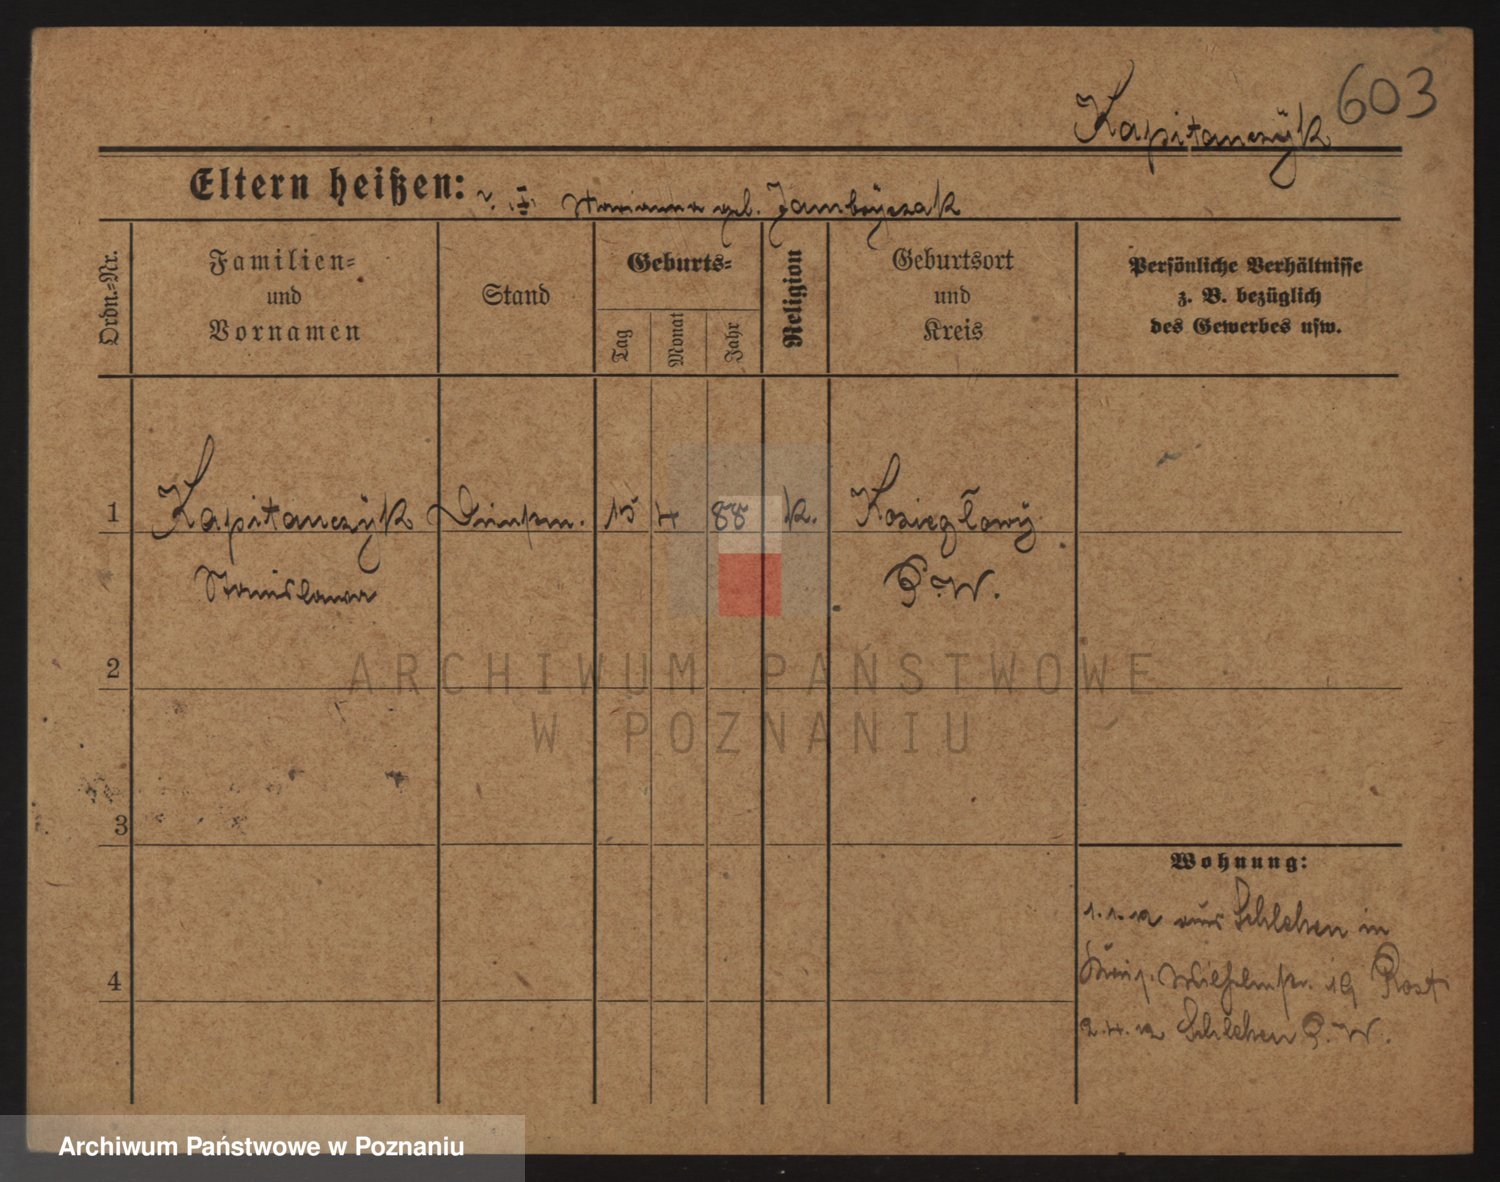 603
Kapitanczÿk
Eltern heißen: v. Marianna geb. Jambrÿczak
Ordn.-Nr.
Familien-
und
Vornamen
Stand
Geburts-
Tag
Monat
Jahr
Religion
Geburtsort
und
Kreis
Persönliche Verhältnisse
z. B. bezüglich
des Gewerbes usw.
1 Kapitanczÿk 15 4 88 k. Koziegłowÿ
Stanislawa P. W.
2
3
4
Wohnung:
1.1.12 aus Schlehen in
Wilhelmstr. 19 Rost
2.4.12 Schlehen P. W.
ARCHIWUM PAŃSTWOWE
W POZNANIU
Archiwum Państwowe w Poznaniu